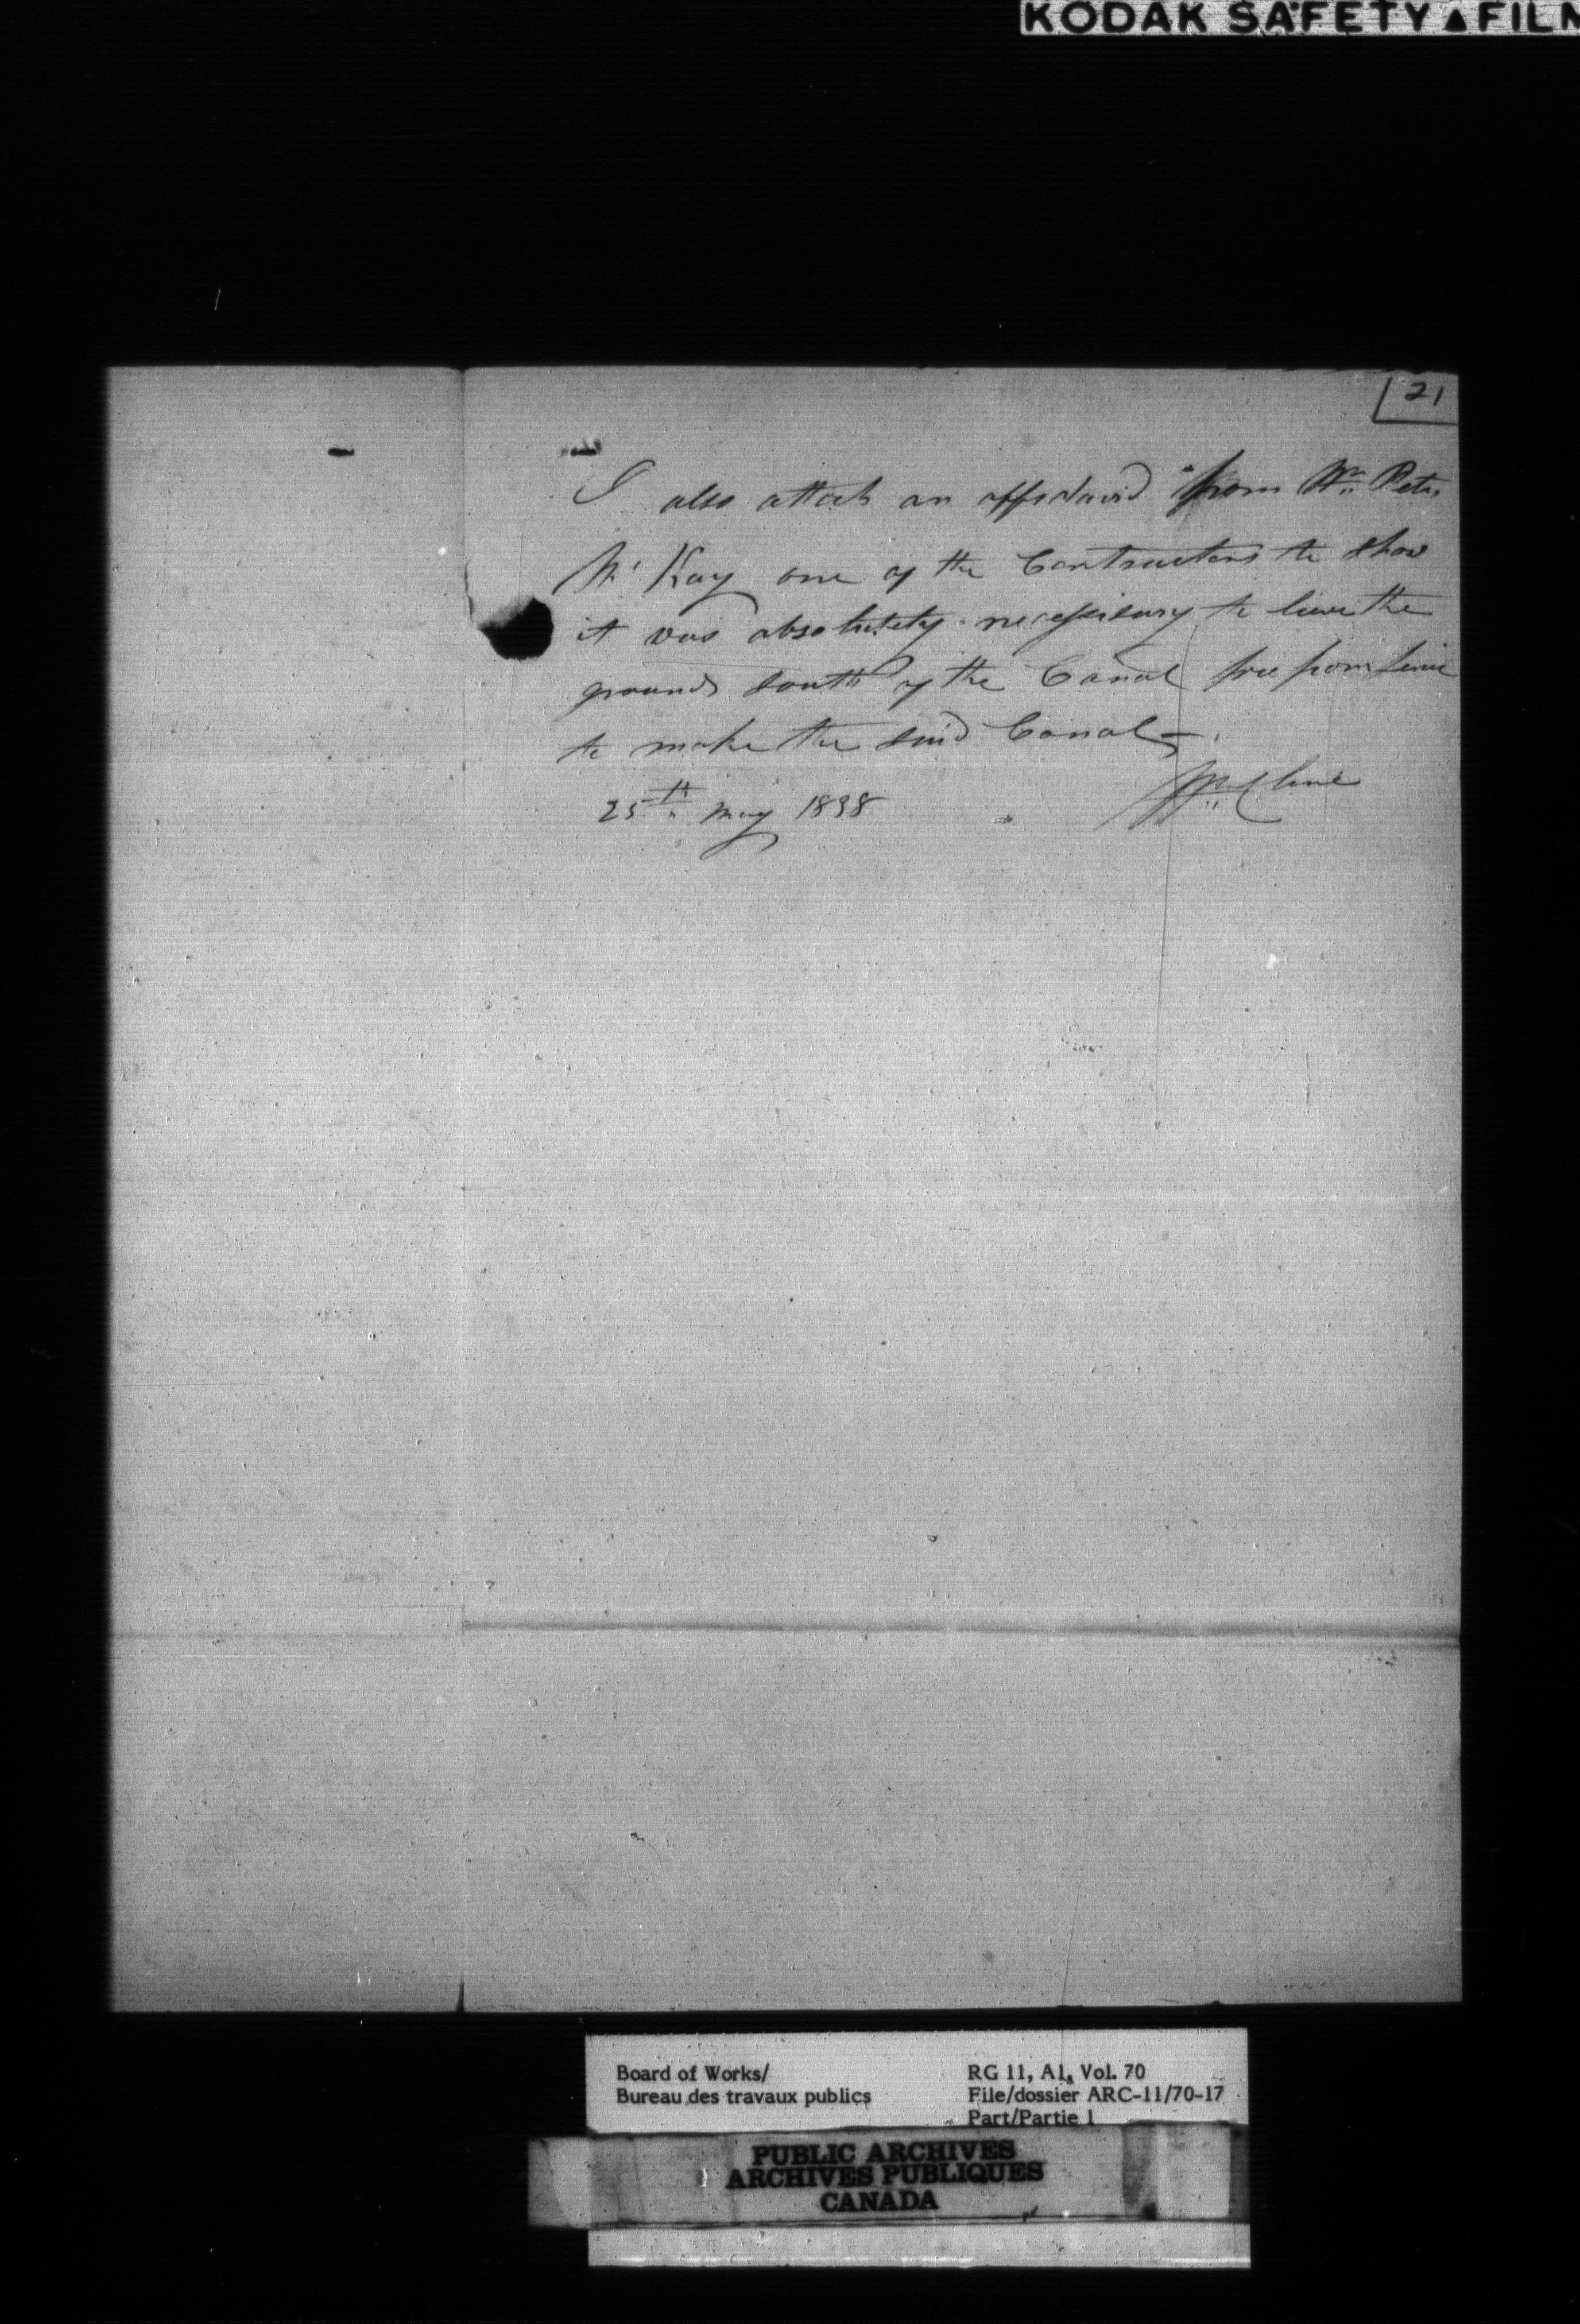 KODAK SAFETY ▲ FILM
21
I also attach an affidavid from Mr. Peter
Mc Kay one of the Contractors to show
it was absolutety necessisary to leave the
ground south of the Canal free from fence
to make the said Canal
25th May 1838
Wm Cline
Board of Works/
Bureau des travaux publics
RG 11, A1, Vol. 70
File/dossier ARC-11/70-17
Part/Partie 1
PUBLIC ARCHIVES
ARCHIVES PUBLIQUES
CANADA